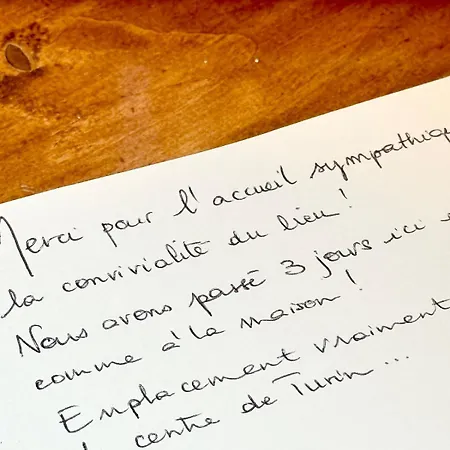 Merci pour l'accueil sympathiqu
la convivialité du lieu!
Nous avons passé 3 jours ici
comme à la maison!
Emplacement vraiment
centre de Turin...